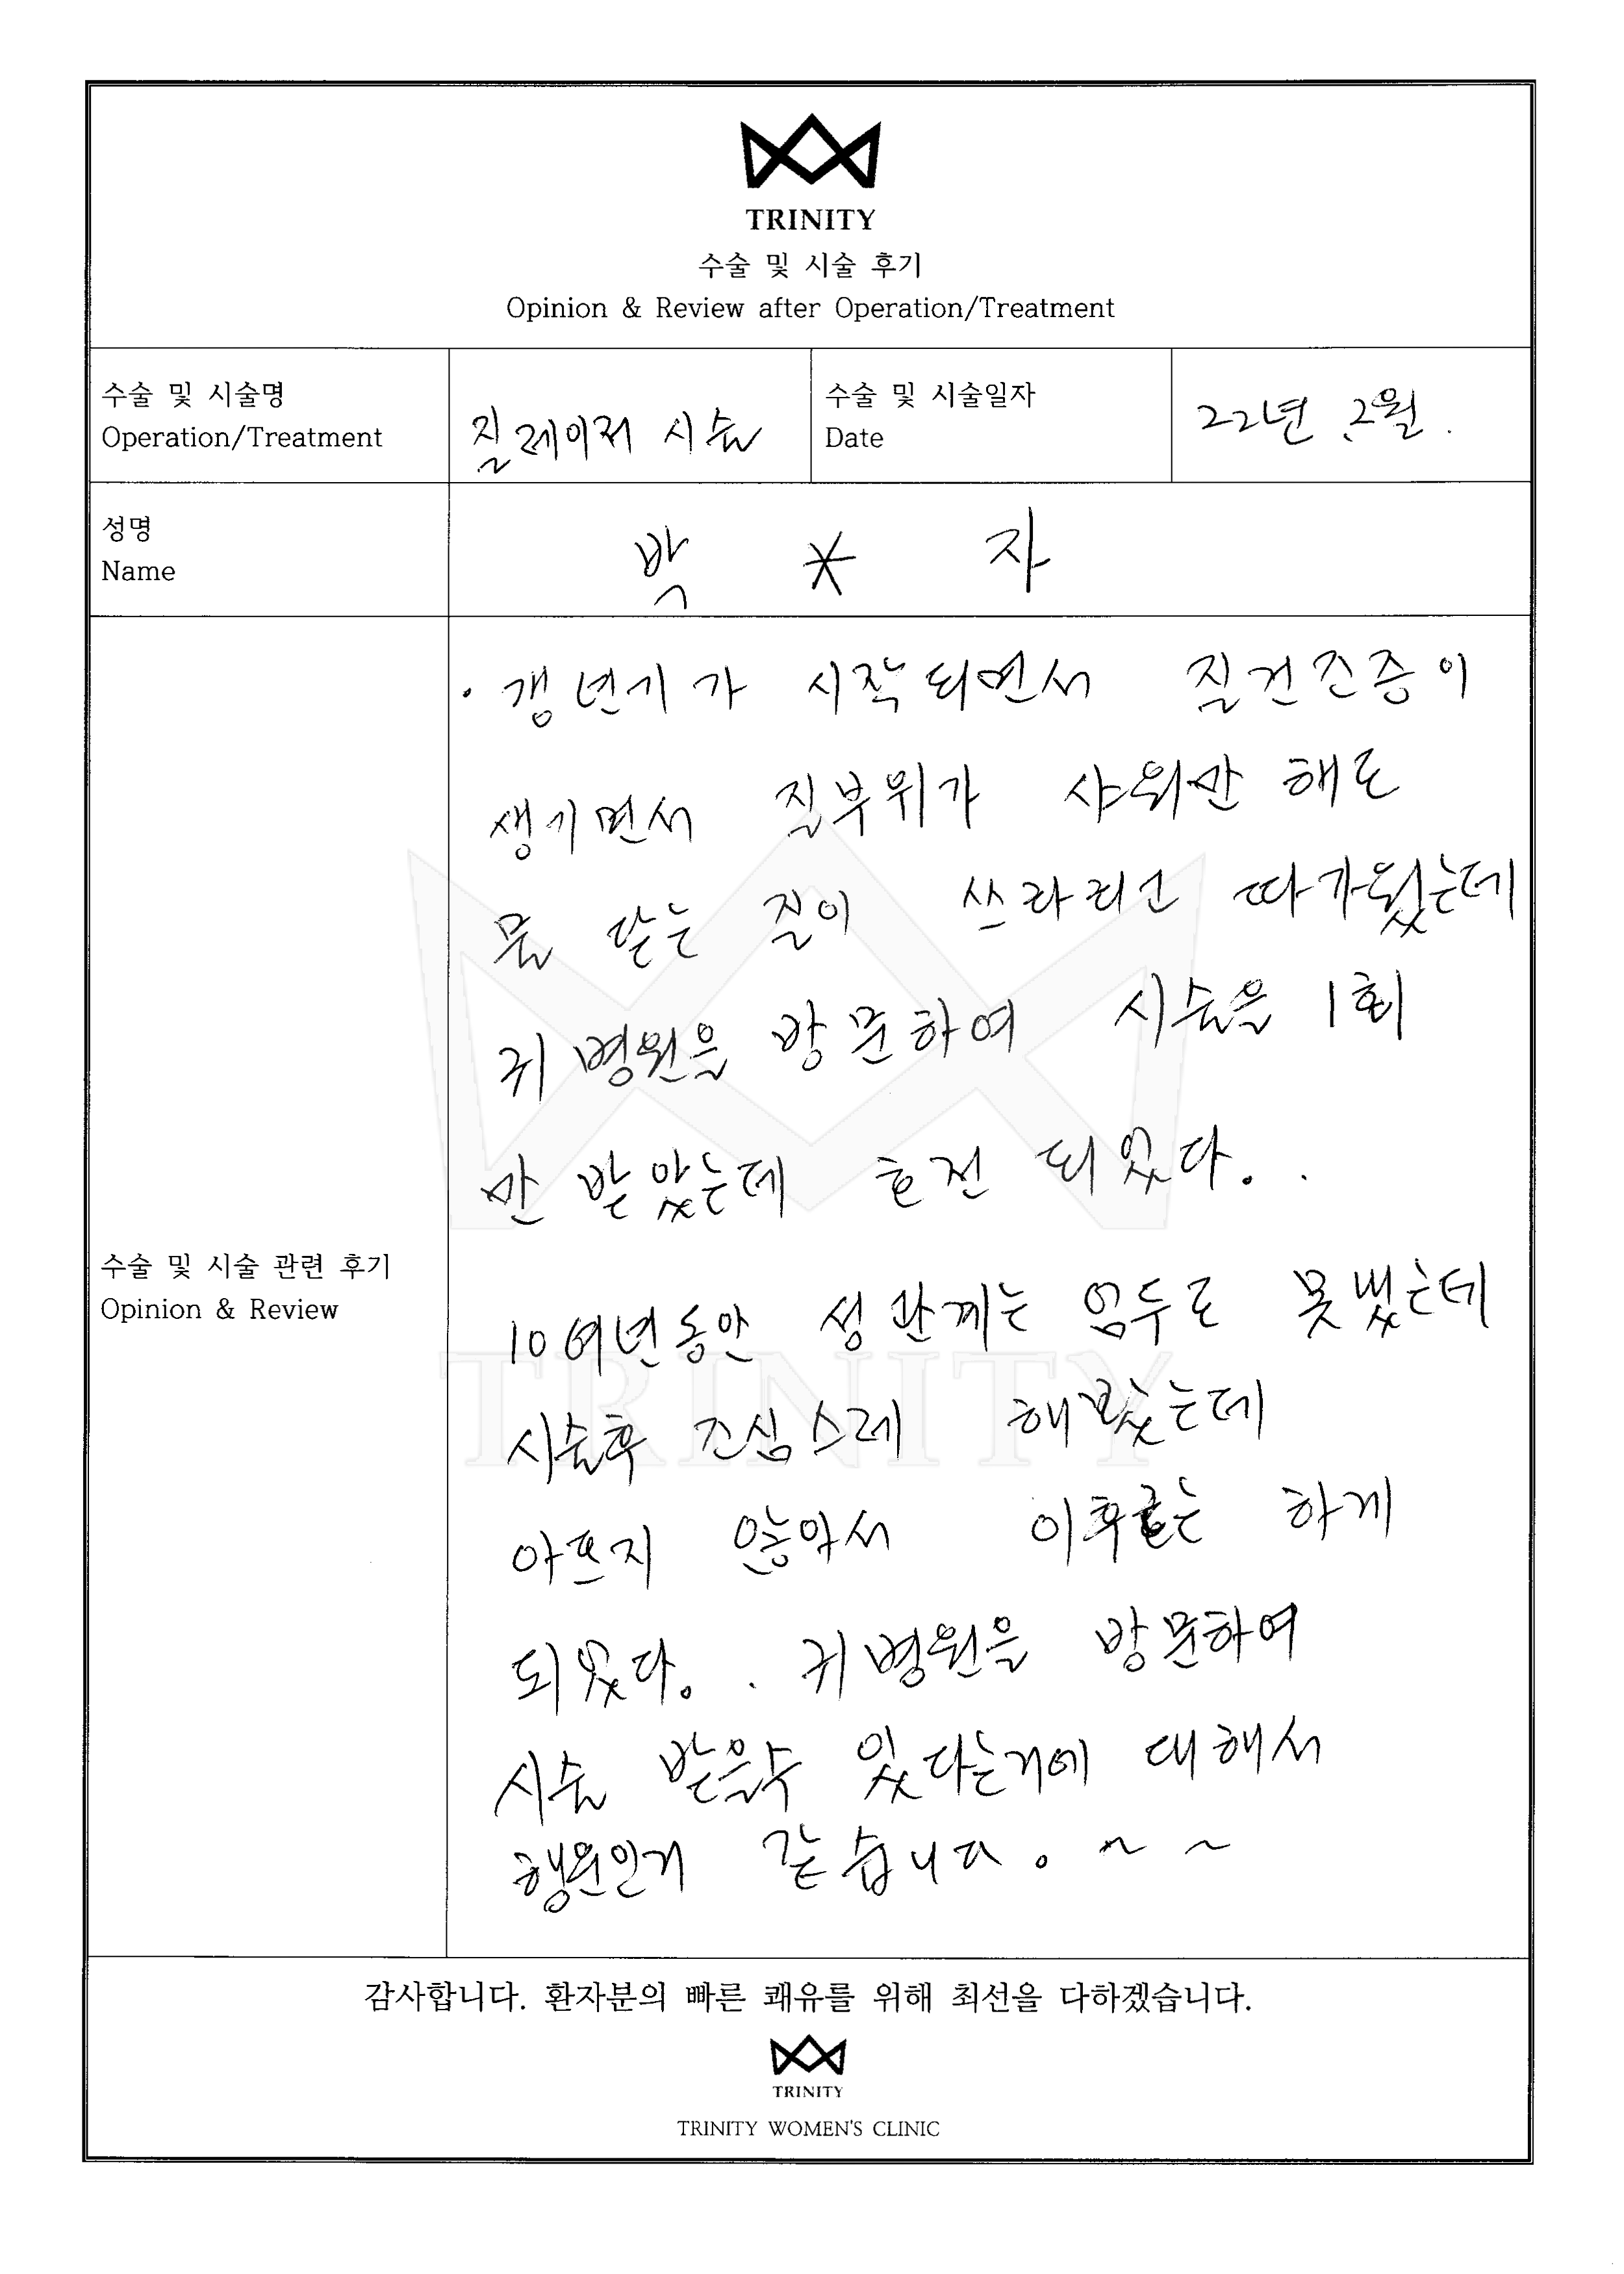 TRINITY
수술 및 시술 후기
Opinion & Review after Operation/Treatment
수술 및 시술명
Operation/Treatment
질레이저 시술
수술 및 시술일자
Date
22년 2월.
성명
Name
박 * 자
수술 및 시술 관련 후기
Opinion & Review
· 갱년기가 시작되면서 질건조증이
생기면서 질부위가 샤워만 해도
물 닿는 질이 쓰라리고 따가웠는데
귀 병원을 방문하여 시술을 1회
만 받았는데 호전 되었다. .
10여년동안 성관계는 엄두도 못냈는데
시술후 조심스레 해봤는데
아프지 않아서 이후로는 하게
되었다. . 귀 병원을 방문하여
시술 받을수 있다는거에 대해서
행운인거 같습니다. ~ ~
TRINITY
감사합니다. 환자분의 빠른 쾌유를 위해 최선을 다하겠습니다.
TRINITY
TRINITY WOMEN'S CLINIC